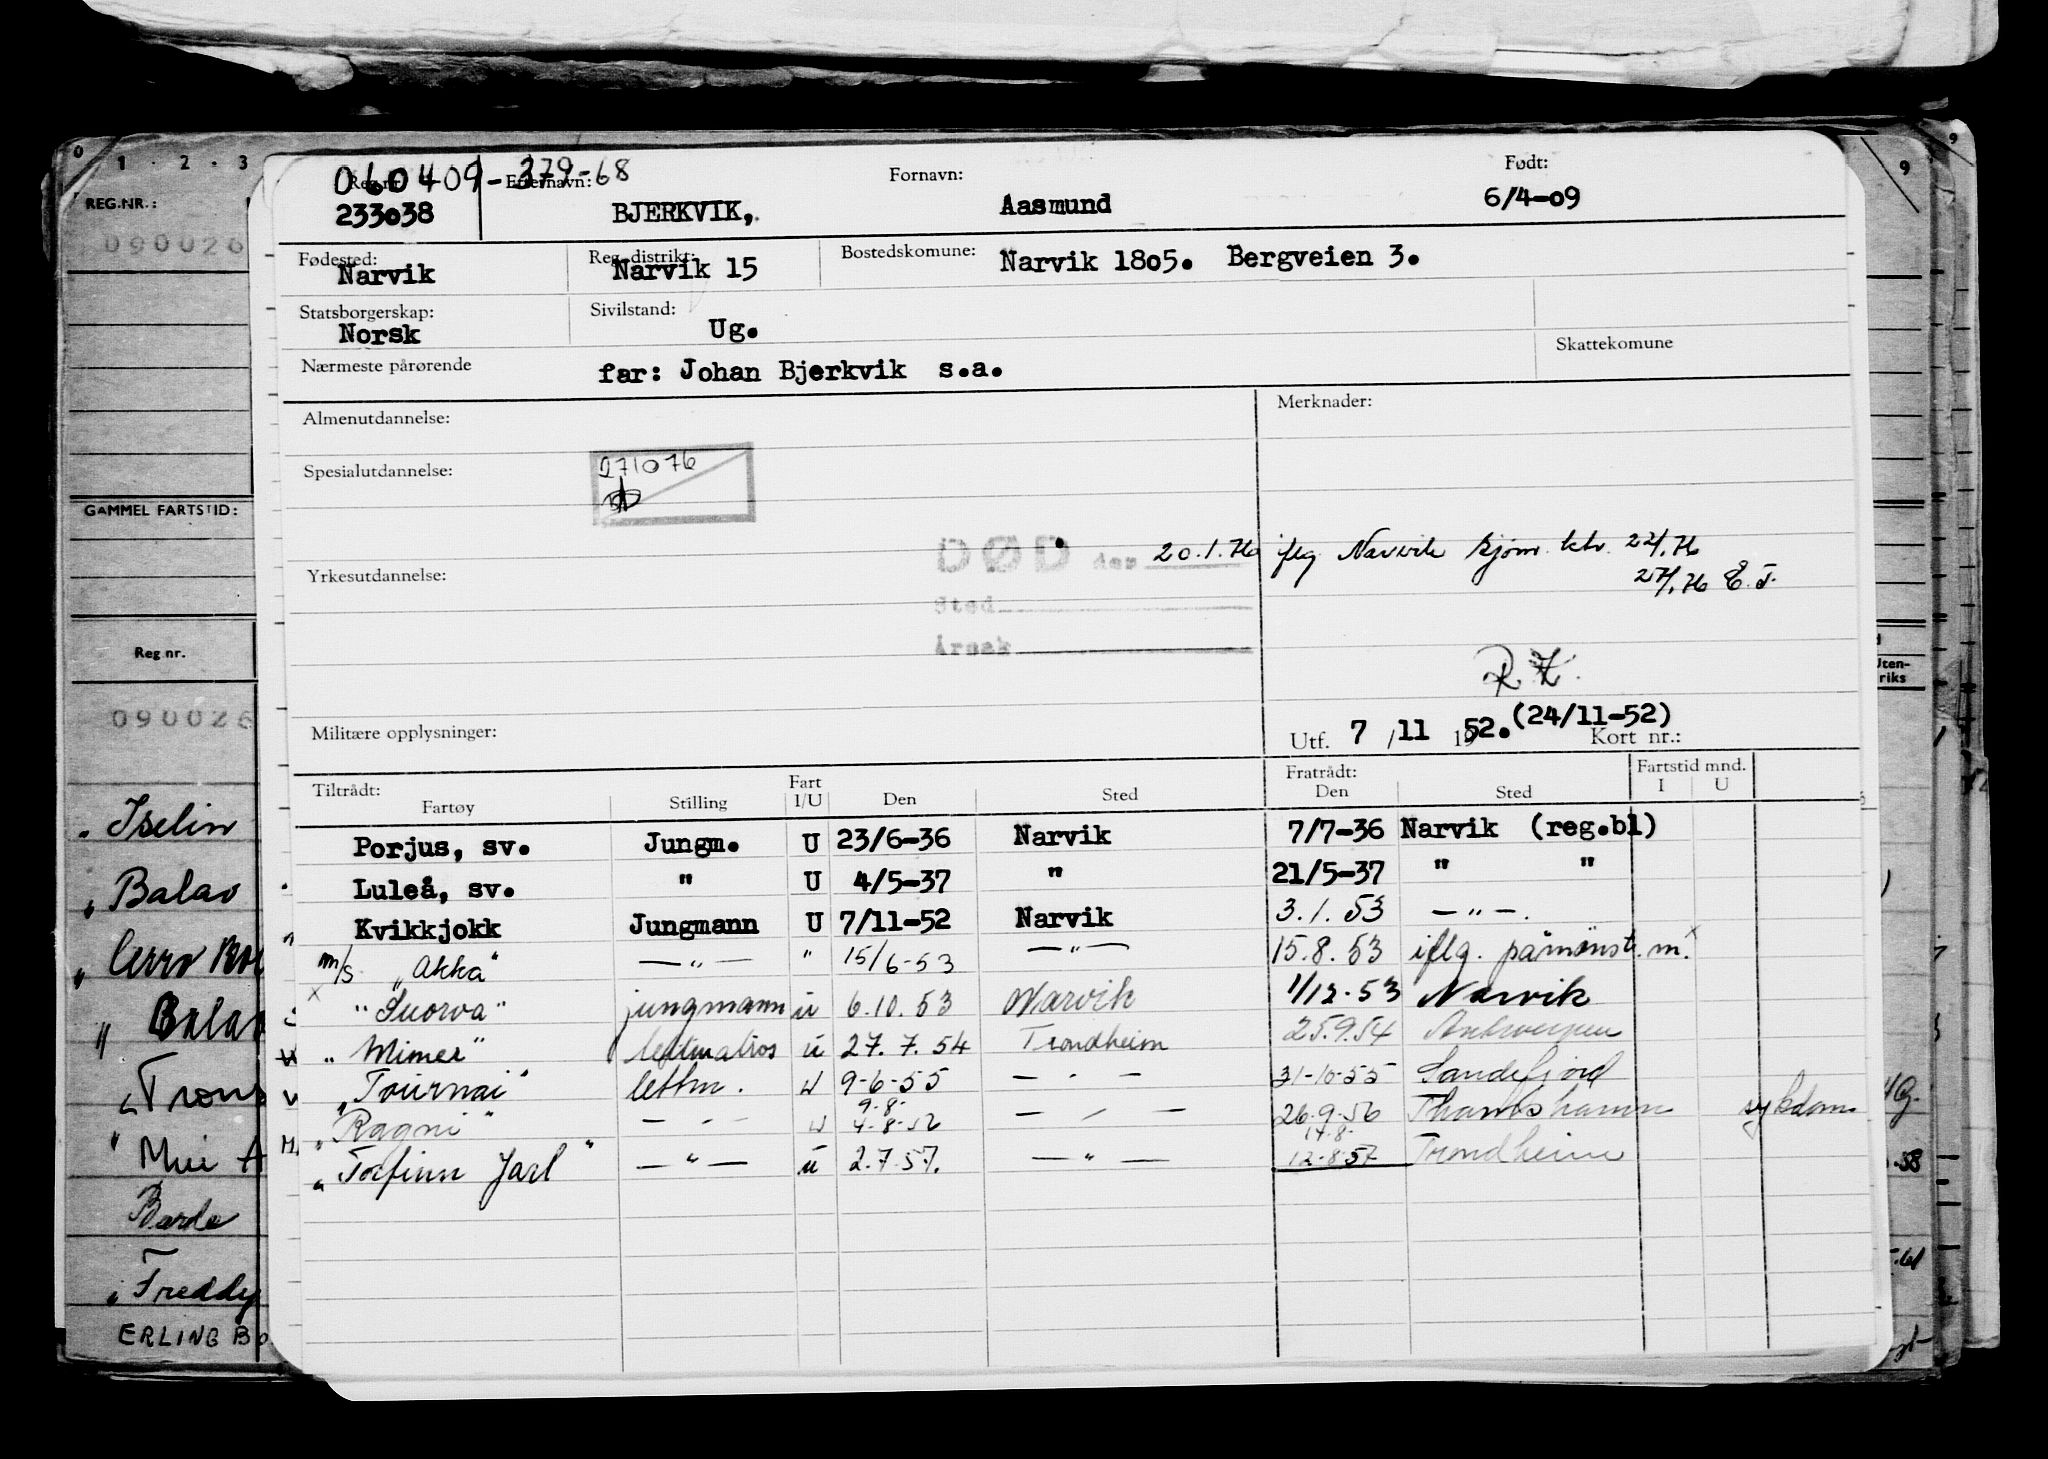 0 1 · 2 · 3
REG.NR.:
090026
GAMMEL FARTSTID:
Reg.nr.
090026
" Iselin
" Balao
" Cerro
" Balao
" Trons
" Mui A
Bardo
" Freddy
ERLING BO
9 9
Uten-
riks
060409-379-68
Reg.nr. Etternavn: Fornavn: Født:
233038 BJERKVIK, Aasmund 6/4-09
Fødested: Reg.distrikt: Bostedskomune:
Narvik Narvik 15 Narvik 1805. Bergveien 3.
Statsborgerskap: Sivilstand:
Norsk Ug.
Nærmeste pårørende far: Johan Bjerkvik s.a. Skattekomune
Almenutdannelse: Merknader:
Spesialutdannelse: 271076
DØD den 20.1.76 iflg Narvik sjøm. ktr. 22/1.76
Yrkesutdannelse: 27/1.76 E.T.
Sted
Årsak
Militære opplysninger: Utf. 7 / 11 1952. (24/11-52) Kort nr.:
Tiltrådt: Fart Fratrådt: Fartstid mnd.
Fartøy Stilling I/U Den Sted Den Sted I U
Porjus, sv. Jungm. U 23/6-36 Narvik 7/7-36 Narvik (reg.bl)
Luleå, sv. " U 4/5-37 " 21/5-37 " "
Kvikkjokk Jungmann U 7/11-52 Narvik 3.1.53 — " —.
m/s "Akka" — " — " 15/6-53 — " — 15.8.53 iflg. påmønst. m. x
x "Suorva" jungmann u 6.10.53 Narvik 1/12.53 Narvik
" Mimer" lettmatros u 27.7.54 Trondheim 25.9.54 Antwerpen
" Tournai" lettm. u 9-6-55 — " — 31-10-55 Sandefjord
9-8-
" Ragni" — " — u 4-8-56 — " — 26-9-56 Thamshamn sykdom
17-8-
" Torfinn Jarl" — " — u 2.7.57. — " — 12-8-57 Trondheim